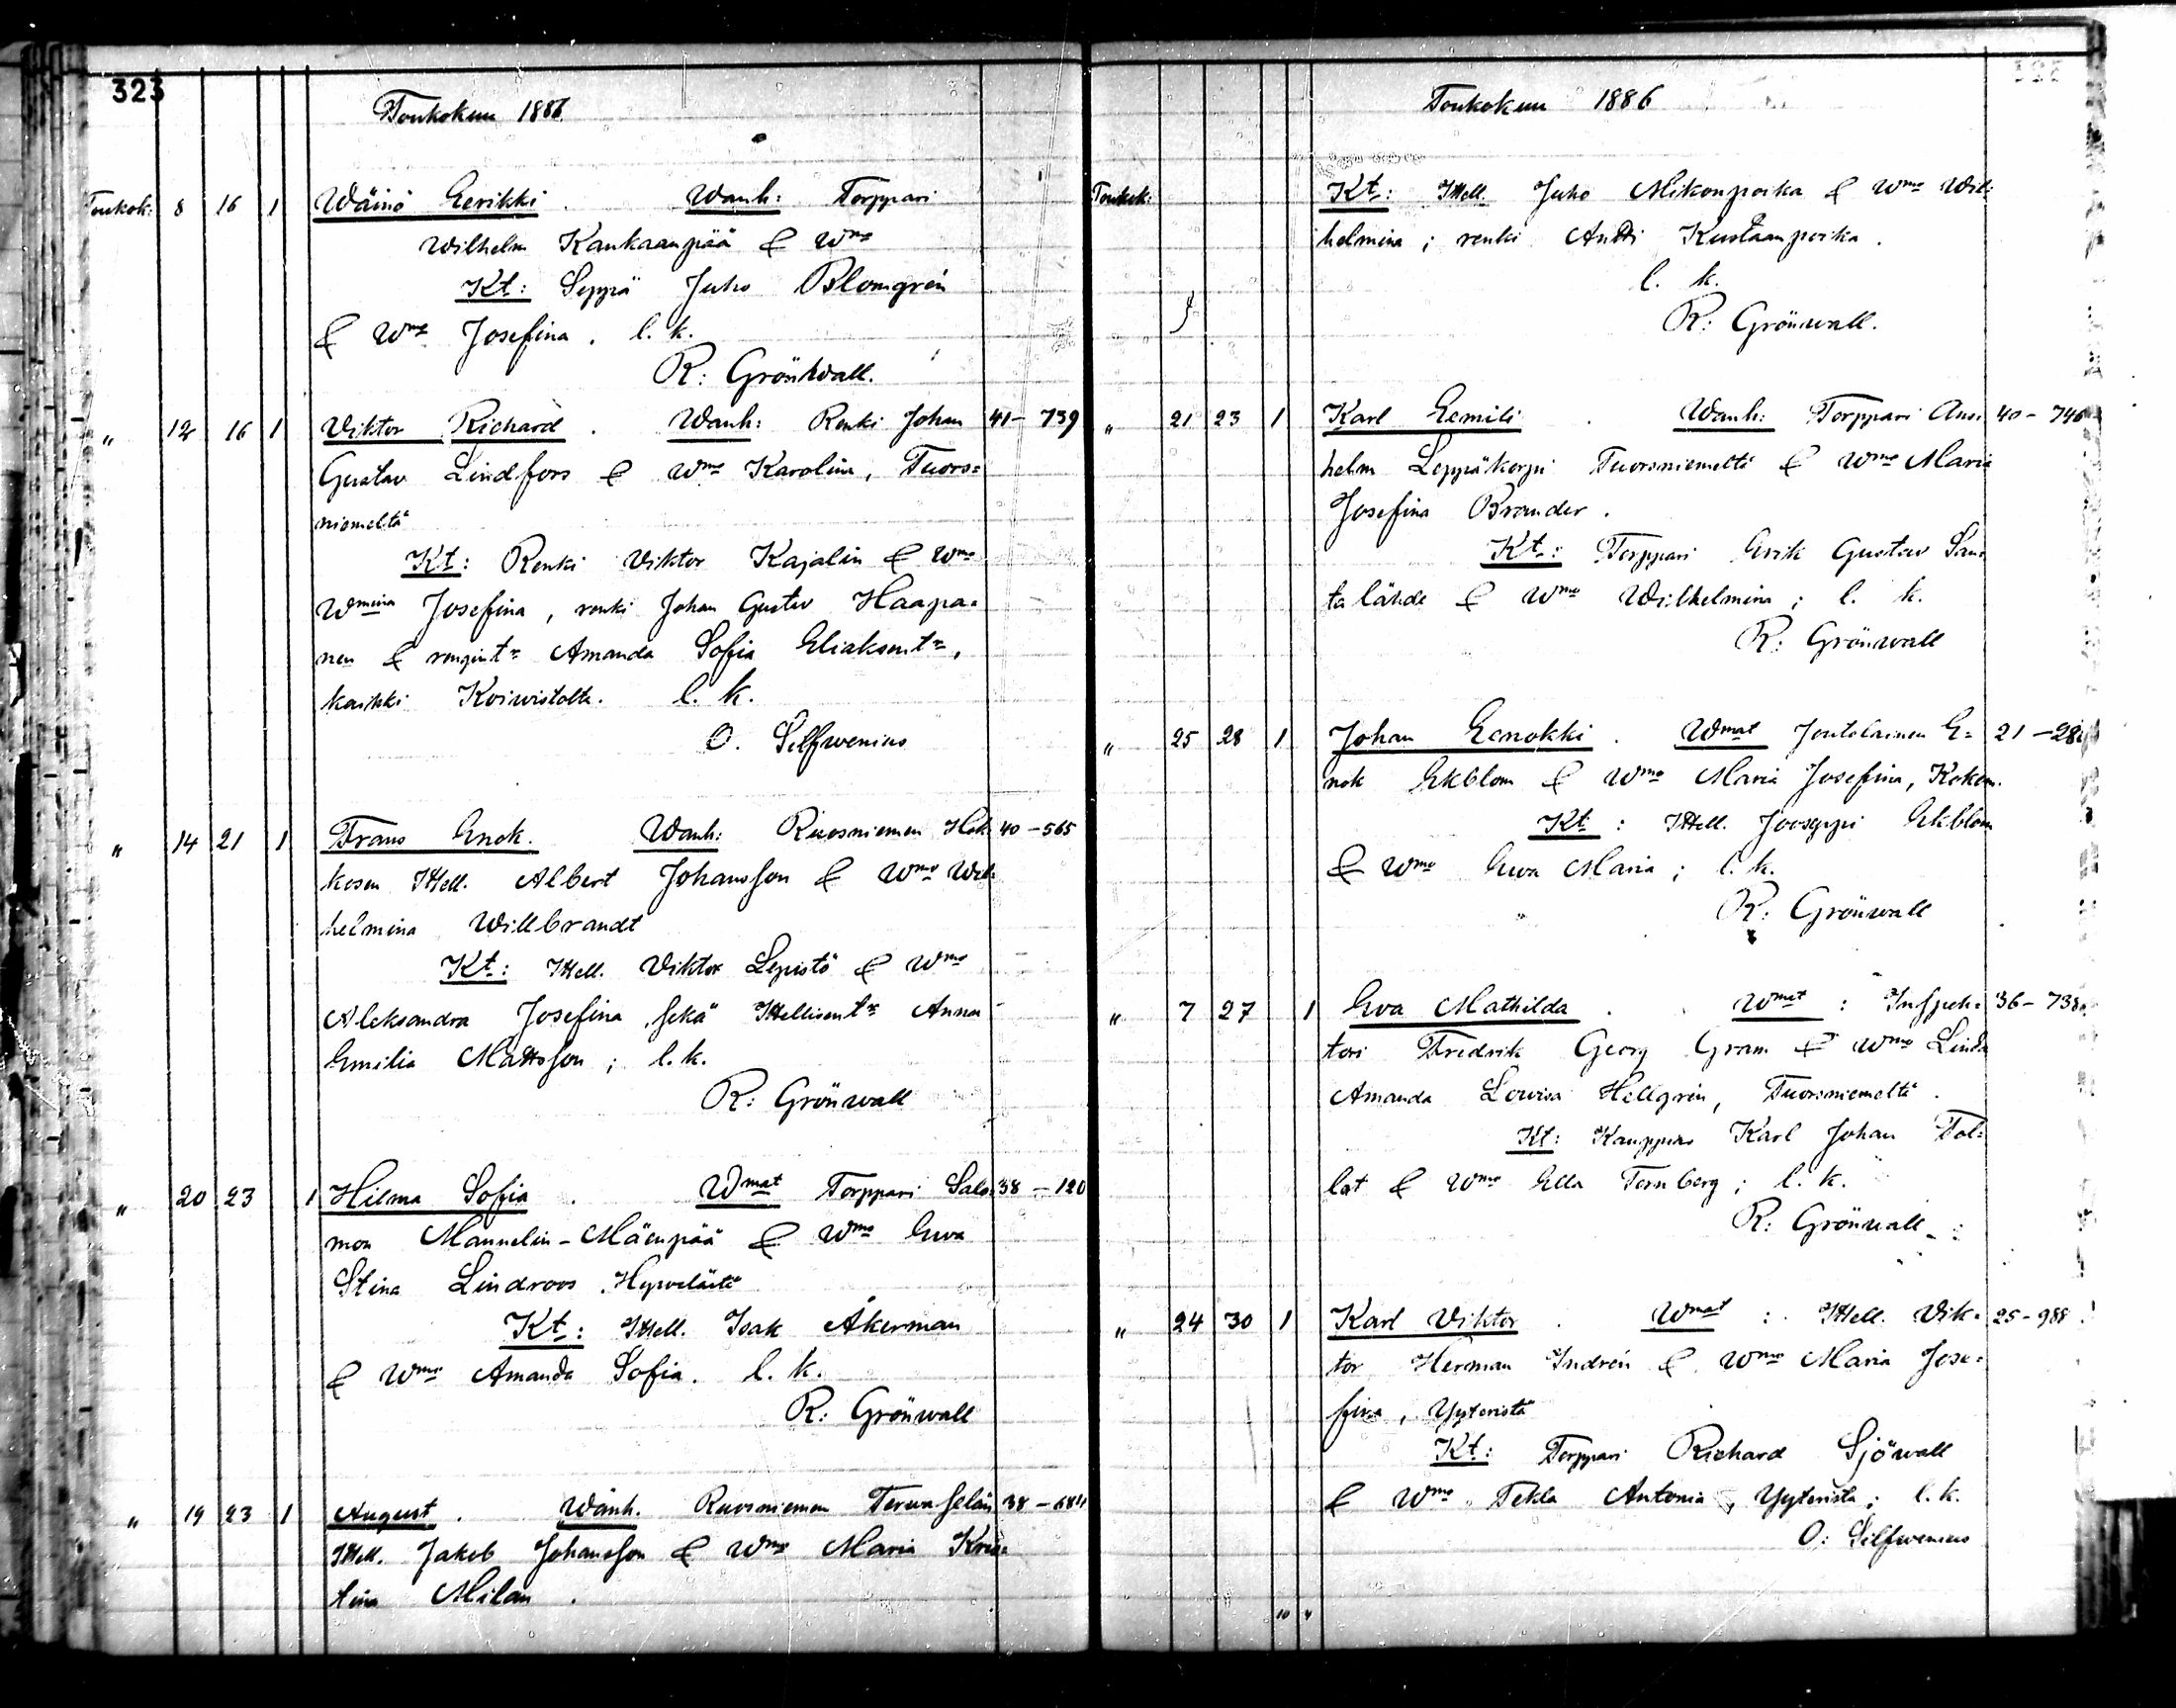 323
Toukokuu 1886.
Toukok: 8 16 1 Wäinö Eerikki. Wanh: Torppari
Wilhelm Kankaanpää & Wmo
Kt: Seppä Juho Blomgrén
& Wmo Josefina. l. k.
R: Grönwall.
" 12 16 1 Viktor Richard. Wanh: Renki Johan 41 - 739
Gustav Lindfors & Wmo Karolina, Tuors=
niemeltä
Kt: Renki Viktor Kajalin & Wmo
Wmina Josefina, renki Johan Gustav Haapa=
nen & rengint= Amanda Sofia Eliaksent=,
kaikki Koivistolta. l. k.
O. Silfwenius
" 14 21 1 Frans Enok. Wanh: Ruosniemen Hak 40 - 565
kosen Itsell. Albert Johansson & Wmo Wil=
helmina Willbrandt
Kt: Itsell. Viktor Lepistö & Wmo
Aleksandra Josefina, sekä Itsellisent= Anna
Emilia Mattsson; l. k.
R: Grönwall
" 20 23 1 Hilma Sofia. Wmat Torppari Salo= 38 - 120
mon Mannelin-Mäenpää & Wmo Ewa
Stina Lindroos. Hyvelästä
Kt: Itsell. Isak Åkerman
& Wmo Amanda Sofia. l. k.
R: Grönwall
" 19 23 1 August. Wanh. Ruosniemen Terwaselän 38 - 684
Itsell. Jakob Johansson & Wmo Maria Kris=
tina Milan.
Toukokuu 1886
Toukok: Kt: Itsell. Juho Mikonpoika & Wmo Wil=
helmina; renki Antti Kustaanpoika.
l. k.
R: Grönwall.
" 21 23 1 Karl Eemili. Wanh: Torppari Ans= 40 - 746
helm Leppäkorpi Tuorsniemeltä & Wmo Maria
Josefina Brander.
Kt: Torppari Erik Gustav San=
talähde & Wmo Wilhelmina; l. k.
R: Grönwall
" 25 28 1 Johan Eenokki. Wmat Joutolainen E= 21 - 28
nok Ekblom & Wmo Maria Josefina, Kokem.
Kt: Itsell. Jooseppi Ekblom
& Wmo Ewa Maria; l. k.
R: Grönwall
" 7 27 1 Ewa Mathilda. Wmat: Inspek= 36 - 738
tori Fredrik Georg Gram & Wmo Linda
Amanda Lowisa Hellgrén, Tuorsniemeltä.
Kt: Kauppias Karl Johan Tal=
lat & Wmo Ella Ternberg; l. k.
R: Grönwall
" 24 30 1 Karl Viktor. Wmat: Itsell. Vik= 25 - 988
tor Herman Indrén & Wmo Maria Jose=
fina, Yyteristä
Kt: Torppari Richard Sjöwall
& Wmo Tekla Antonia, Yyteristä; l. k.
O: Silfwenius
10 4